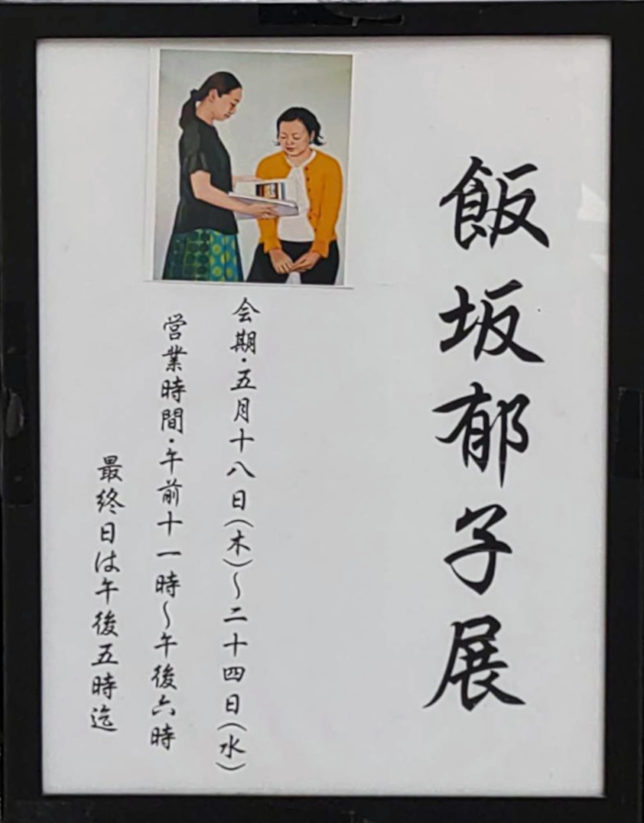 飯坂郁子展
会期・五月十八日(木)〜二十四日(水)
営業時間・午前十一時〜午後六時
最終日は午後五時迄